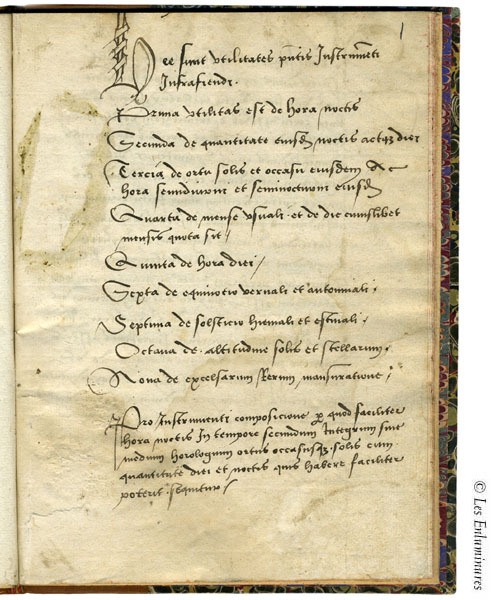 1
Hec sunt utilitates pn̄tis Instrumēti
Infrafiendi.
Prima utilitas est de hora noctis
Secunda de quantitate eiusdē noctis actqꝫ diei
Tercia de ortu solis et occasu eiusdem Ac
hora semidiurni et seminocturni eiusdē
Quarta de mense usuali et de die cuiuslibet
mensis quota sit /
Quinta de hora diei /
Sexta de equinotio vernali et autonnali.
Septima de solsticio hiemali et estivali.
Octava de altitudine solis et stellarum.
Nona de excelsarum Rerum mansuratione /
Pro Instrumenti composicione ꝑ quod faciliter
hora noctis In tempore secundum Integrum sive
medium horologium ortus occasusqꝫ solis cum
quantitate diei et noctis quis habere faciliter
poterit sequitur /
© Les Enluminures